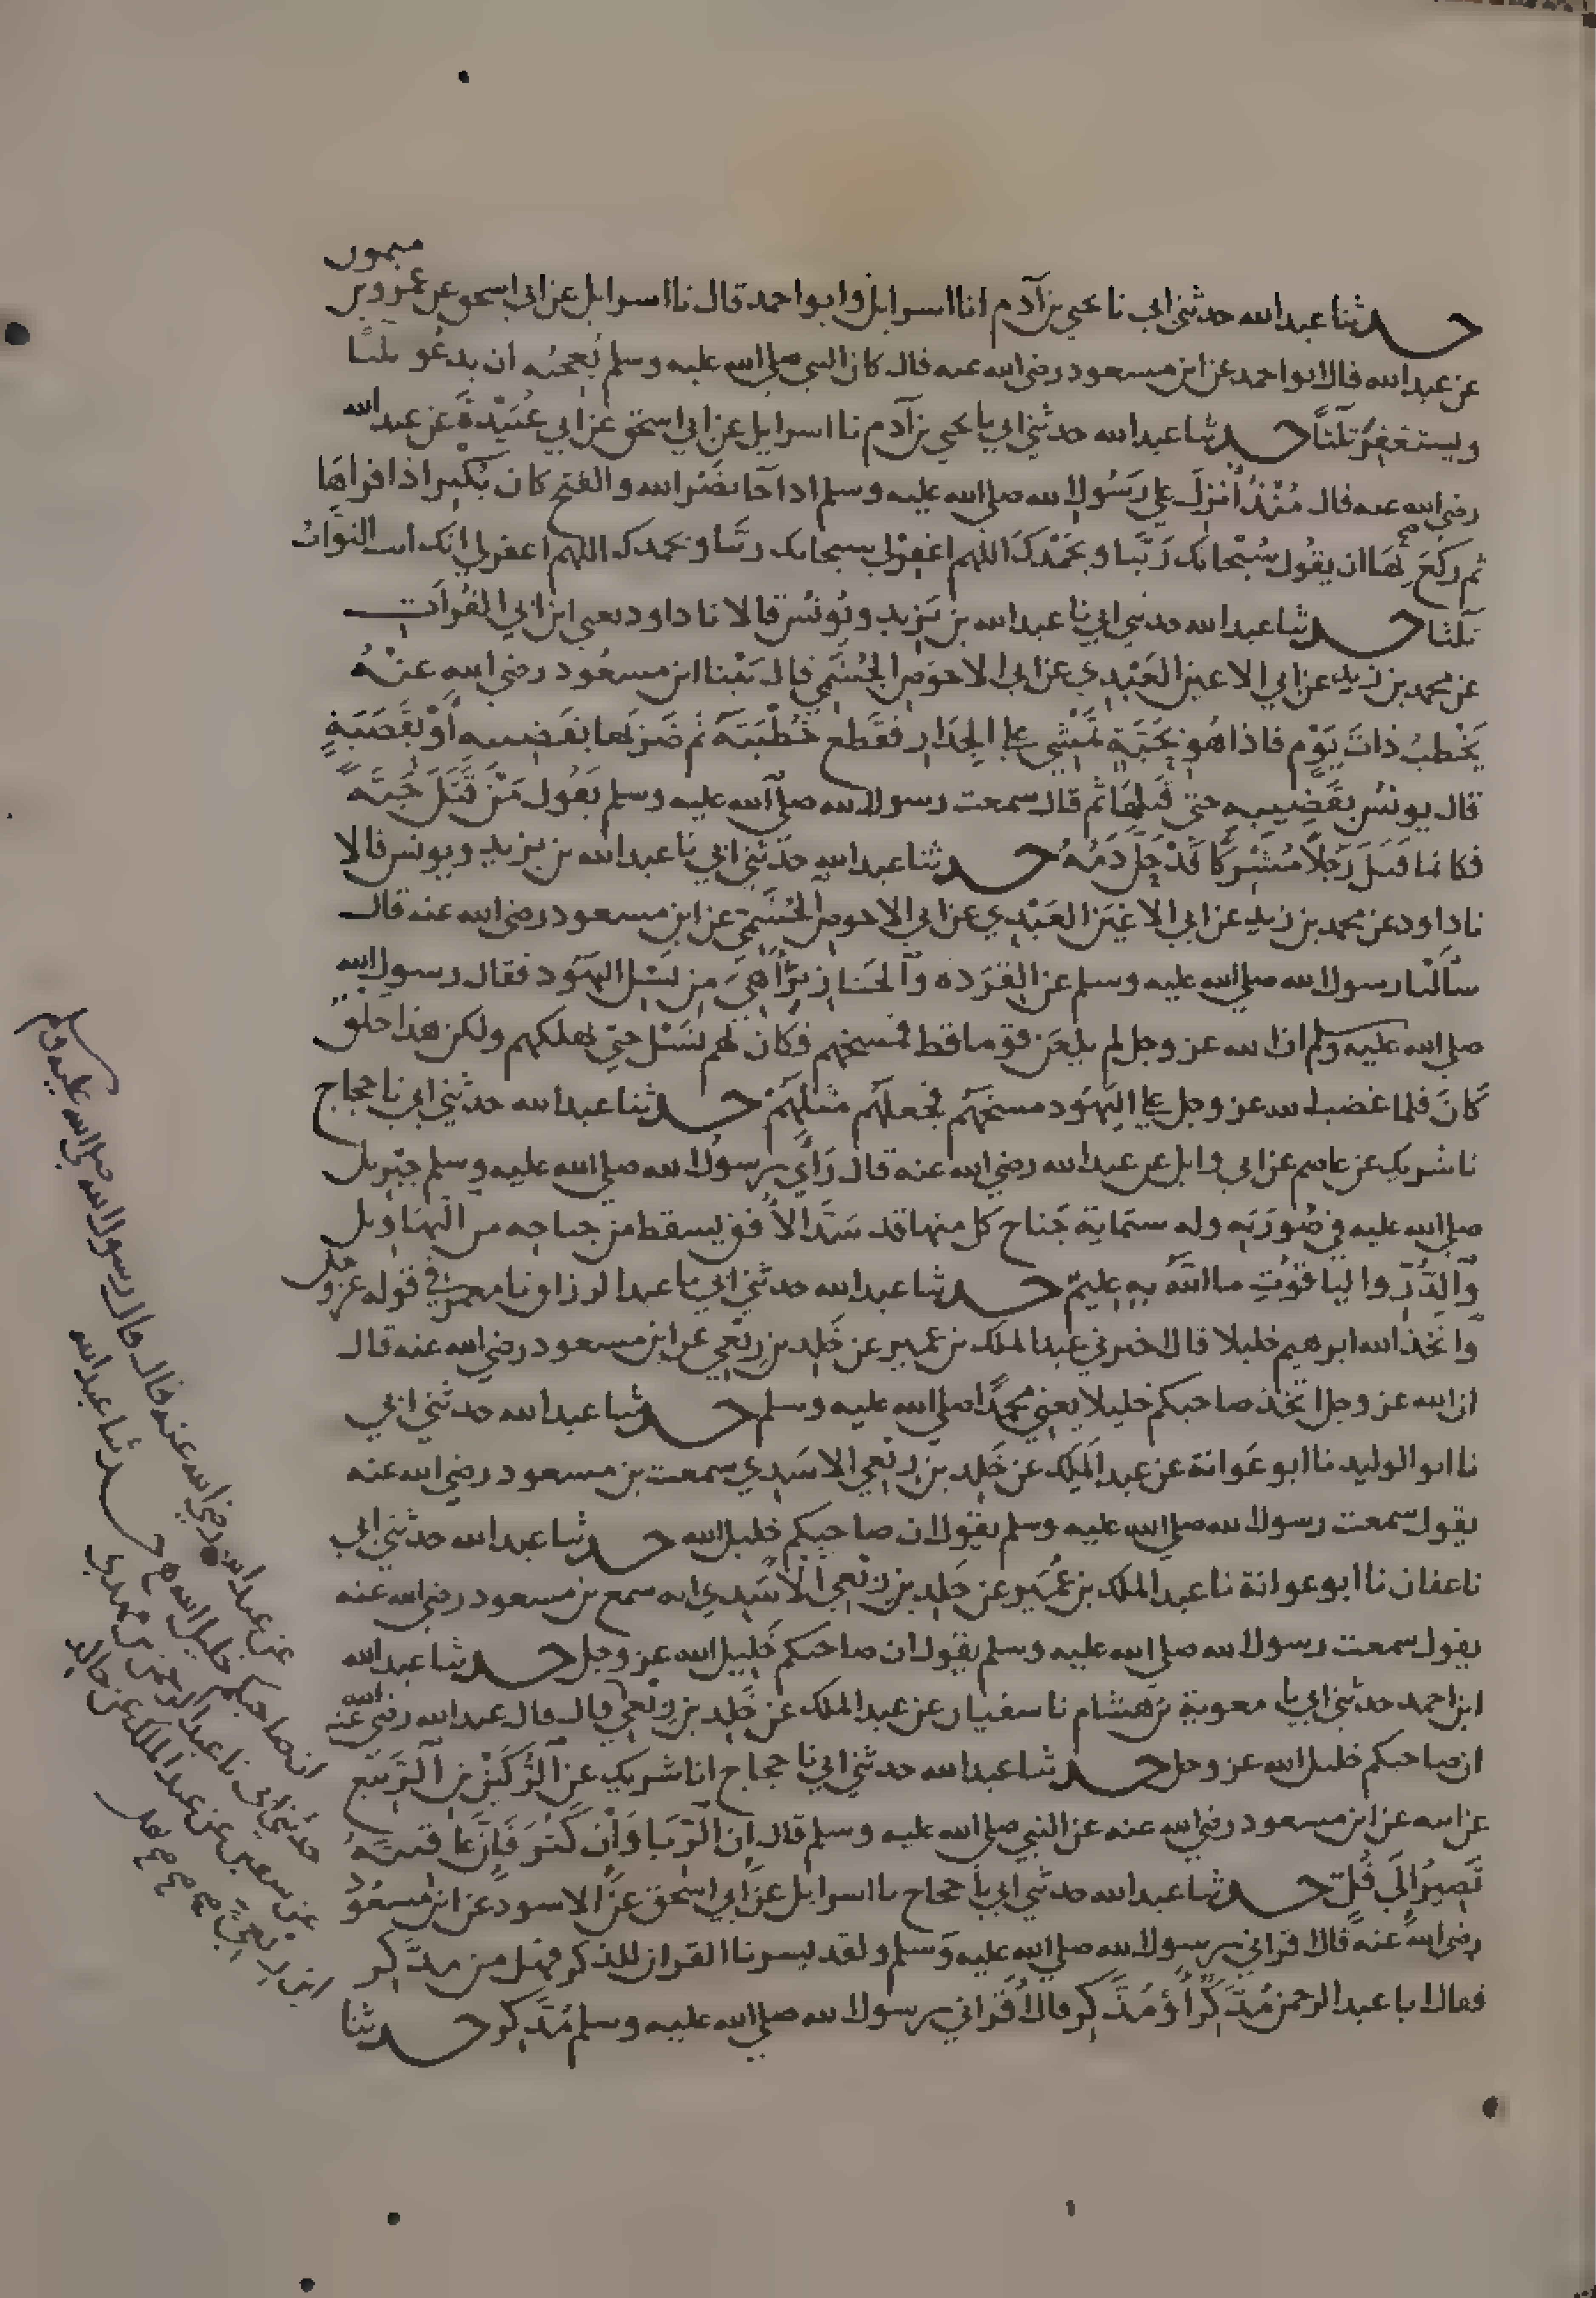 ميمون
حدثنا عبد الله حدثني ابي نا يحيى بن آدم انا اسرايل وابو احمد قال نا اسرايل عن ابي اسحق عن عمرو بن
عن عبد الله قال ابو احمد عن ابن مسعود رضي الله عنه قال كان النبي صلى الله عليه وسلم يُعجبُه ان يدعُو ثلثا
ويستغفِرَ ثلثًا حدثنا عبد الله حدثني ابي نا يحيى بن آدم نا اسرايل عن ابي اسحق عن ابي عُبَيْدةَ عن عبد الله
رضي الله عنه قال مُنْذُ أُنزِلَ على رَسُول الله صلى الله عليه وسلم اذا جا نصْر الله والفتح كان يُكْثِر اذا قراهَا
ثم ركَعَ بهَا ان يقُول سُبْحانك رَبَّنا وبحَمْدك اللهم اغفِرْ لي سبحانك ربَّنا وبحمدك اللهم اغفر لي انك انت التوابُ
ثلثا حدثنا عبد الله حدثني ابي نا عبد الله بن يَزِيد ويُونُس قالا نا داود يعني ابن ابي الفُرات
عن محمد بن زيد عن ابي الاعين العَبْدِي عن ابي الاحوَص الجُشَمي قال بَيْنا ابن مسعُود رضي الله عنْهُ
يَخْطبُ ذاتَ يَوْم فاذا هُو بحَيَّةٍ تَمْشي على الجِدَار فقَطع خُطْبَتَه ثم ضَرَبها بقَضيبه أَوْ بقَصَبَةٍ
قال يونُس بقَضِيبه حتى قتلهَا ثم قال سمعت رسول الله صلى الله عليه وسلم يَقُول مَنْ قَتَلَ حَيَّةً
فكانما قتَلَ رَجُلًا مُشْرِكًا قَدْ حَلَّ دَمُهُ حدثنا عبد الله حدّثني ابي نا عبد الله بن يزيد ويونس قالا
نا داود عن محمد بن زيد عن ابي الاعْيَن العَبْدِي عن ابي الاحوص الجُشَمِيّ عن ابن مسعود رضي الله عنه قال
سأَلنا رسول الله صلى الله عليه وسلم عن القِرَدَه والخَنازِيرِ أَهِيَ مِن نَسْل اليهَود فقال رسول الله
صلى الله عليه وسلم ان الله عز وجل لم يلعَن قوما قط فمسخهم فكان لهم نَسْل حتى يهلكهم ولكن هذا خلق
كانَ فلما غضب الله عز وجل على اليَهُود مسخَهُم فجعلهُم مثلهُمْ حدثنا عبد الله حدثني ابي نا حجاج
نا شريك عن عاصم عن ابي وايل عن عبد الله رضي الله عنه قال رَأَى رسولُ الله صلى الله عليه وسلم جبْريل
صلى الله عليه في صُورَتِه وله ستماية جَناح كل منها قد سَدَّ الأُفق يسقط من جناحه من التهَاويل
والدُّرِّ واليَاقوُتِ ما اللهُ بِه عليمٌ حدثنا عبد الله حدثني ابي نا عبد الرزاق نا معمر في قوله عز وجل
واتخذ الله ابرهيم خليلا قال اخبرني عبد الملك بن عمير عن خٰلِد بن رِبْعِي عن ابن مسعود رضي الله عنه قال
ان الله عز وجل اتخذ صاحبكم خليلا يعني محمدًا صلى الله عليه وسلم حدثنا عبد الله حدثني ابي
نا ابو الوليد نا ابو عَوانة عن عبد المَلِك عن خٰلد بن رِبْعي الاسَدي سمعت بن مسعود رضي الله عنه
يقول سمعت رسول الله صلى الله عليه وسلم يقول ان صاحبكم خليل الله حدثنا عبد الله حدثني ابي
نا عفان نا ابو عوانة نا عبد الملك بن عُمَيْر عن خٰلِد بن رِبْعي الأَسَدي انه سمع بن مسعود رضي الله عنه
يقول سمعت رسول الله صلى الله عليه وسلم يقول ان صاحبكم خَليل الله عز وجل حدثنا عبد الله
ابن احمد حدثني ابي نا معوية بن هشام نا سفيان عن عبد الملك عن خٰلِد بن رِبْعي قال قال عبد الله رضي الله عنه
ان صاحبكم خليل الله عز وجل حدثنا عبد الله حدثني ابي نا حجاج انا شريك عن الرُّكَيْن بن الرَّبِيع
عن ابيه عن ابن مسعود رضي الله عنه عن النبي صلى الله عليه وسلم قال إن الرّبا وَأَن كَثُرَ فَإِنَّ عاقبتَهُ
تَصِيرُ إلَى قُلّ حدثنا عبد الله حدثني ابي نا حجاج نا اسرايل عن أَبي اسحق عن الاسود عن ابن مسعُود
رضي الله عنه قال اقراني رسول الله صلى الله عليه وسلم ولقد يسرنا القرآن للذكر فهل من مدَّكر
فقال ابا عبد الرحمن مُدَّكِر أَوْ مُذَّكِر قال أَقرَاني رسول الله صلى الله عليه وسلم مُدَّكِر حدثنا
عن عبد الله رضي الله عنه قال قال رسول الله صلى الله عليه وسلم
ان صاحبكم خليل الله حدثنا عبد الله
حدثني ابي نا عبد الرحمن بن مهدي
عن سفين عن عبد الملك عن خالد
ابن ربعيّ صح صح صح